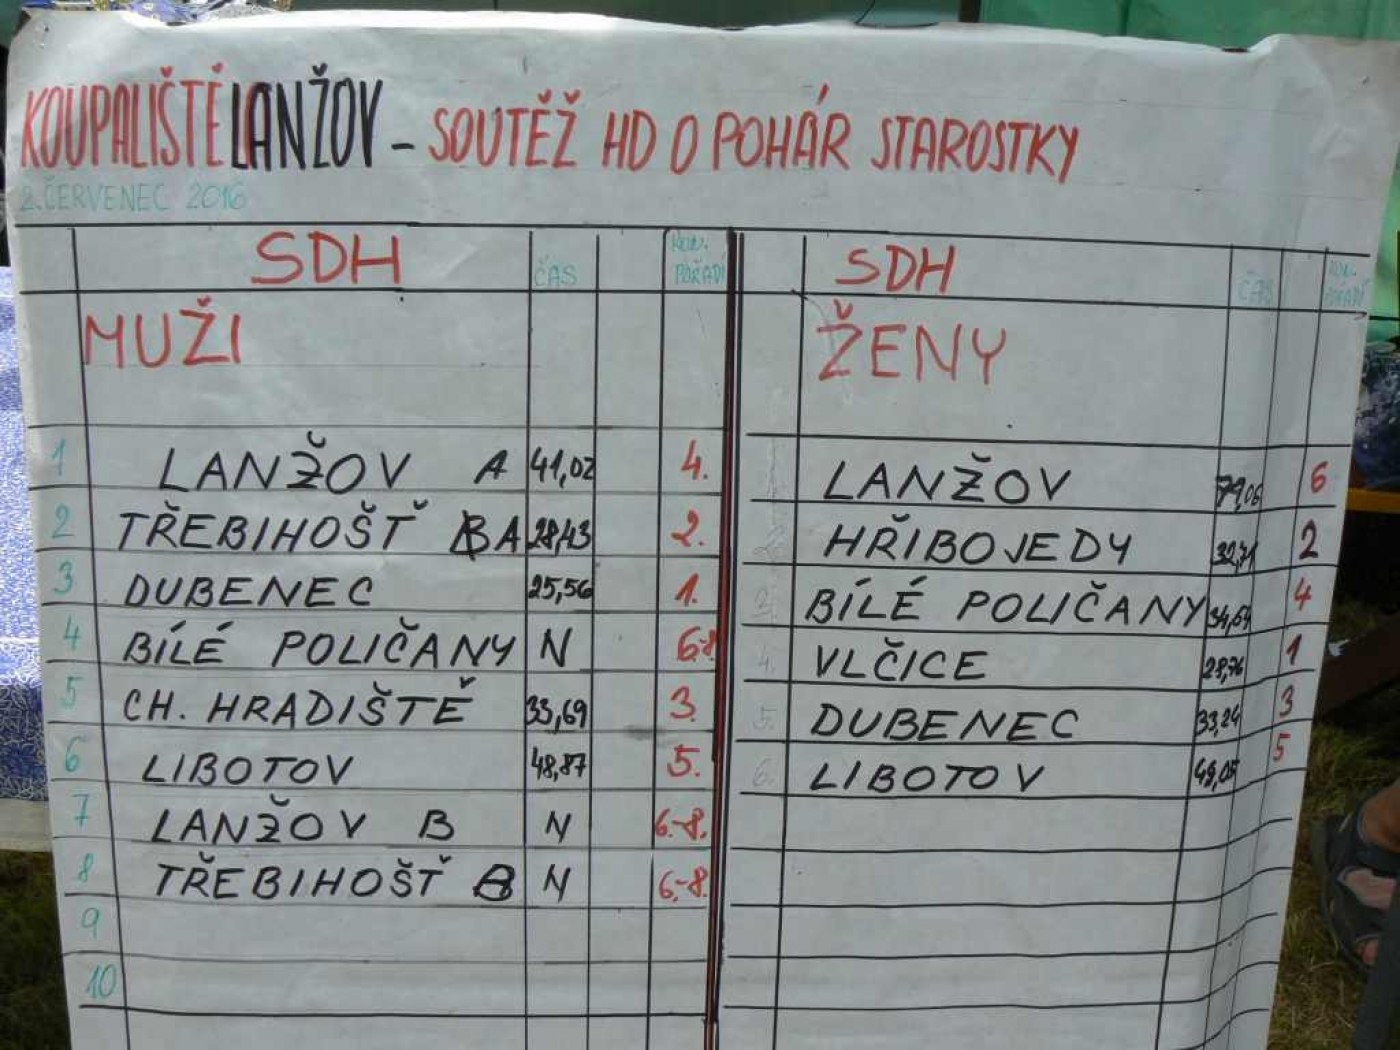 KOUPALIŠTĚ LANŽOV - SOUTĚŽ HD O POHÁR STAROSTKY
2. ČERVENEC 2016
SDH ČAS KON. POŘADÍ
MUŽI
1 LANŽOV A 41,02 4.
2 TŘEBIHOŠŤ A 28,43 2.
3 DUBENEC 25,56 1.
4 BÍLÉ POLIČANY N 6.-8.
5 CH. HRADIŠTĚ 33,69 3.
6 LIBOTOV 48,87 5.
7 LANŽOV B N 6.-8.
8 TŘEBIHOŠŤ B N 6.-8.
9
10
SDH ČAS KON. POŘADÍ
ŽENY
LANŽOV 79,06 6
HŘIBOJEDY 32,71 2
BÍLÉ POLIČANY 34,64 4
4. VLČICE 28,76 1
5. DUBENEC 33,24 3
6. LIBOTOV 49,05 5